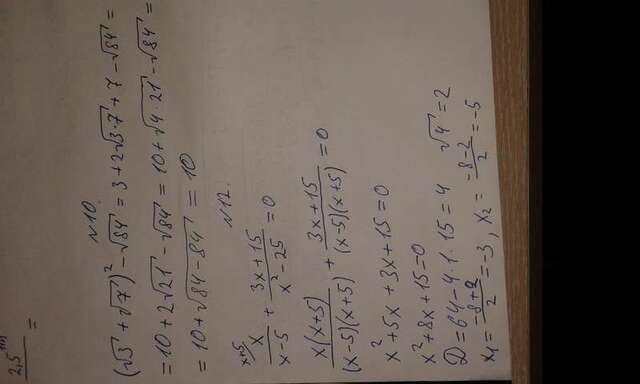 2,5
=
№10.
(√3 + √7)² - √84 = 3 + 2√3·7 + 7 - √84 =
= 10 + 2√21 - √84 = 10 + √4·21 - √84 =
= 10 + √84 - 84 = 10
№12.
x+5
x/(x-5) + (3x+15)/(x²-25) = 0
x(x+5)/((x-5)(x+5)) + (3x+15)/((x-5)(x+5)) = 0
x² + 5x + 3x + 15 = 0
x² + 8x + 15 = 0
D = 64 - 4·1·15 = 4 √4 = 2
x₁ = (-8+2)/2 = -3, x₂ = (-8-2)/2 = -5